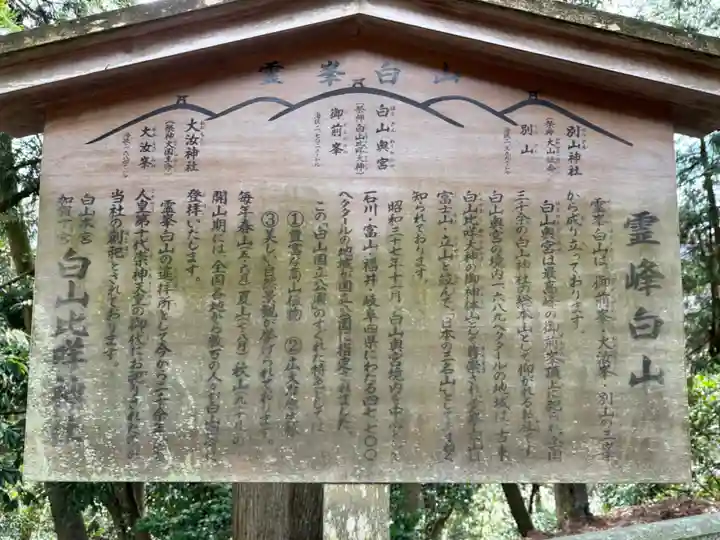 霊峯白山
別山神社
(祭神 大山祇命)
別山
白山奥宮
(祭神 白山比咩大神)
御前峯
大汝神社
(祭神 大国主命)
大汝峯
霊峰白山
霊峯白山は、御前峯・大汝峯・別山の三山
から成り立っております。
白山奥宮は最高峰の御前峯頂上に
三千余の白山神社の総本山として仰がれる
白山奥宮の境内一、六八九ヘクタールの地域は、古来
白山比咩大神の御神体山として
富士山・立山と並んで「日本の三名山」として
知られております。
昭和三十七年十一月、白山奥宮境内を中心とした
石川・富山・福井・岐阜四県にわたる四七、七〇〇
ヘクタールの地域が国立公園に指定されました。
この「白山国立公園」のすぐれた特色としては
①豊富な高山植物 ②
③美しい自然景観が挙げられております。
毎年春山(五・六月)夏山(七・八月)秋山(九・十月)の
開山期には、全国各地から数万の人々が白山
登拝いたします。
霊峯白山の遥拝所として今から二千余年
人皇第十代崇神天皇の御代にお祀りされたのが
当社の創祀とされております。
白山本宮
加賀一ノ宮
白山比咩神社